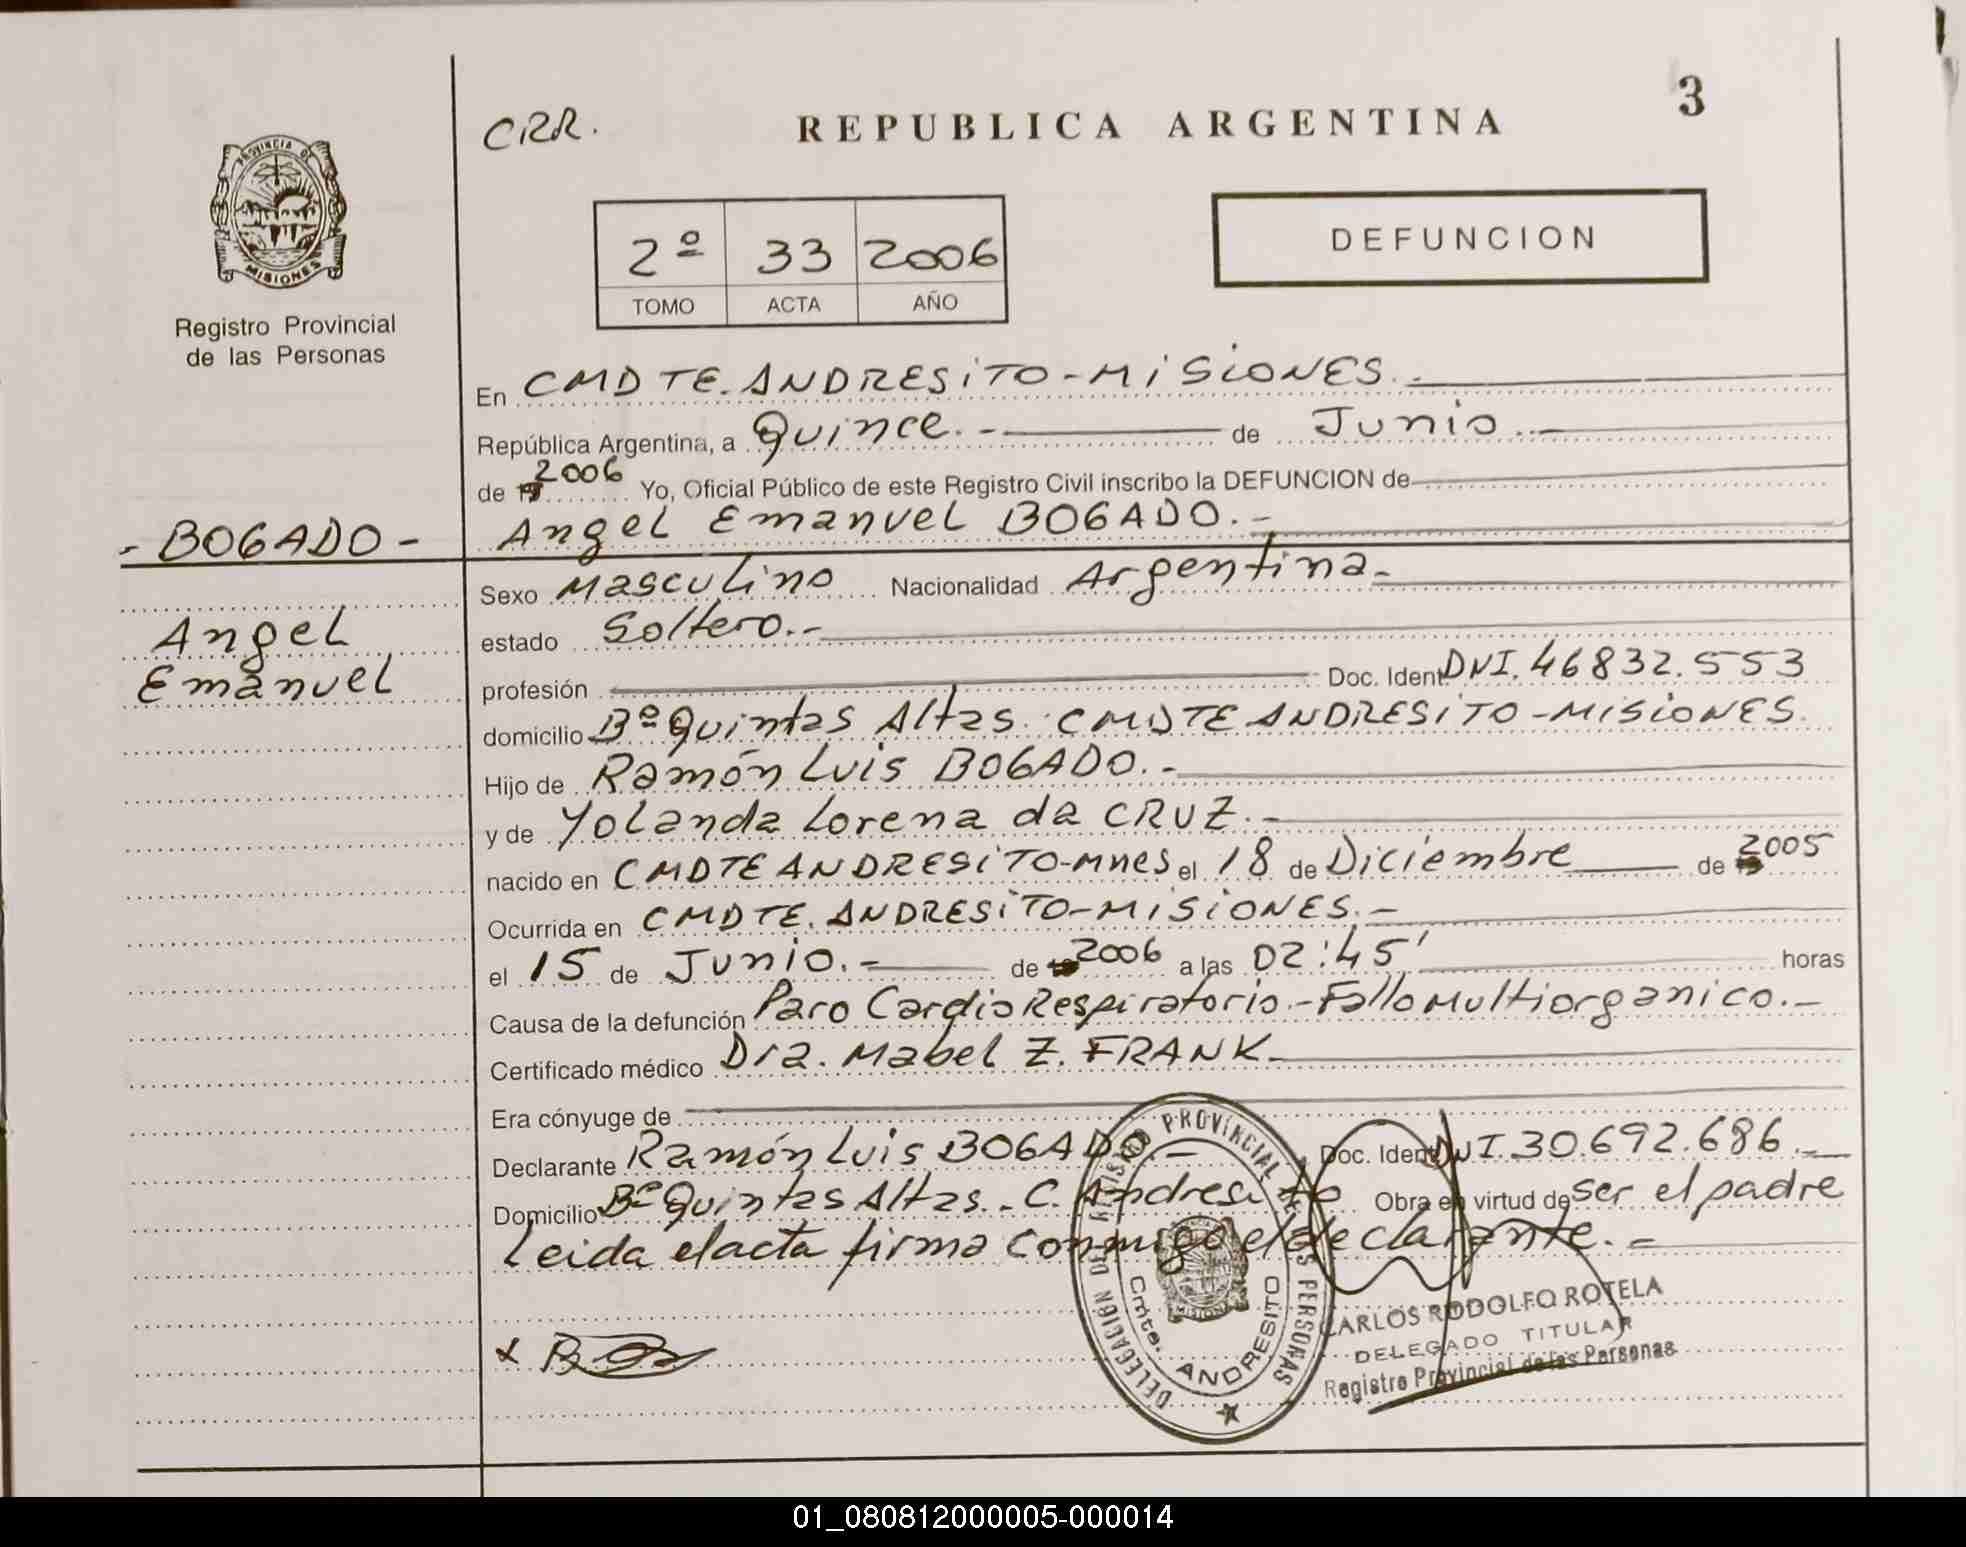 CRR.
REPUBLICA ARGENTINA
3
PROVINCIA DE
MISIONES
Registro Provincial
de las Personas
2º 33 2006
TOMO ACTA AÑO
DEFUNCION
En CMDTE. ANDRESITO - MISIONES.-
República Argentina, a Quince.- de Junio.-
de 19 2006 Yo, Oficial Público de este Registro Civil inscribo la DEFUNCION de
- BOGADO -
Angel Emanuel BOGADO.-
Sexo Masculino Nacionalidad Argentina-
Angel
estado Soltero.-
Emanuel
profesión Doc. Ident DNI. 46832.553
domicilio Bº Quintas Altas. CMDTE ANDRESITO - MISIONES.
Hijo de Ramón Luis BOGADO.-
y de Yolanda Lorena da CRUZ.-
nacido en CMDTE ANDRESITO-Mnes el 18 de Diciembre de 2005
Ocurrida en CMDTE. ANDRESITO-MISIONES.-
el 15 de Junio.- de 2006 a las 02:45' horas
Causa de la defunción Paro CardioRespiratorio.-Fallo Multiorganico.-
Certificado médico Dra. Mabel Z. FRANK-
Era cónyuge de
Declarante Ramón Luis BOGADO.- Doc. Ident DNI. 30.692.686.-
Domicilio Bº Quintas Altas.- C. Andresito Obra en virtud de ser el padre
Leida el acta firma conmigo el declarante.-
DELEGACIÓN DEL REGISTRO PROVINCIAL DE LAS PERSONAS
Cmte. ANDRESITO
MISIONES
CARLOS RODOLFO ROTELA
DELEGADO TITULAR
Registro Provincial de las Personas
01_080812000005-000014